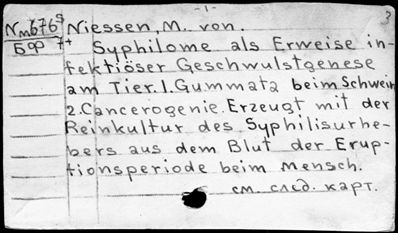 -1-
3
Nm676⁵ Niessen, M. von.
Бф 7+ Syphilome als Erweise in-
fektiöser Geschwulstgenese
am Tier. 1. Gummata beim Schwein
2. Cancerogenie. Erzeugt mit der
Reinkultur des Syphilisurhe-
bers aus dem Blut der Erup-
tionsperiode beim Mensch.
см. след. карт.